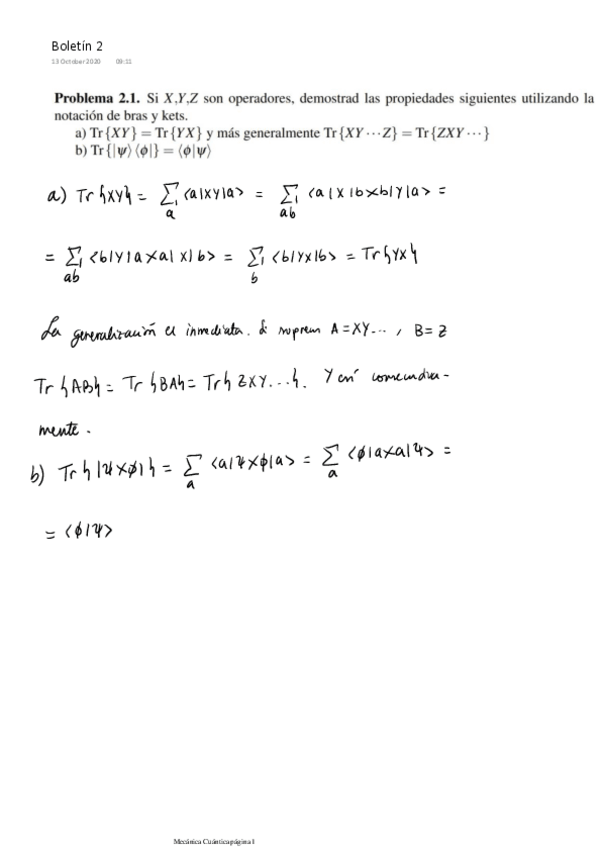 Boletín 2
13 October 2020 09:11
Problema 2.1. Si X,Y,Z son operadores, demostrad las propiedades siguientes utilizando la
notación de bras y kets.
a) Tr{XY} = Tr{YX} y más generalmente Tr{XY⋯Z} = Tr{ZXY⋯}
b) Tr{|ψ⟩⟨ϕ|} = ⟨ϕ|ψ⟩
a) Tr{XY} = ∑_a ⟨a|XY|a⟩ = ∑_ab ⟨a|X|b⟩⟨b|Y|a⟩ =
= ∑_ab ⟨b|Y|a⟩⟨a|X|b⟩ = ∑_b ⟨b|YX|b⟩ = Tr{YX}
La generalización es inmediata. A = XY... , B = Z
Tr{AB} = Tr{BA} = Tr{ZXY...}. Y así
mente.
b) Tr{|ψ⟩⟨ϕ|} = ∑_a ⟨a|ψ⟩⟨ϕ|a⟩ = ∑_a ⟨ϕ|a⟩⟨a|ψ⟩ =
= ⟨ϕ|ψ⟩
Mecánica Cuántica página 1